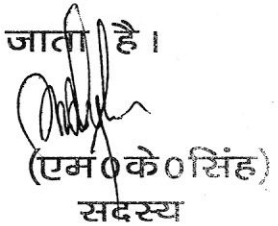 जाता है।
(एम०के०सिंह)
सदस्य